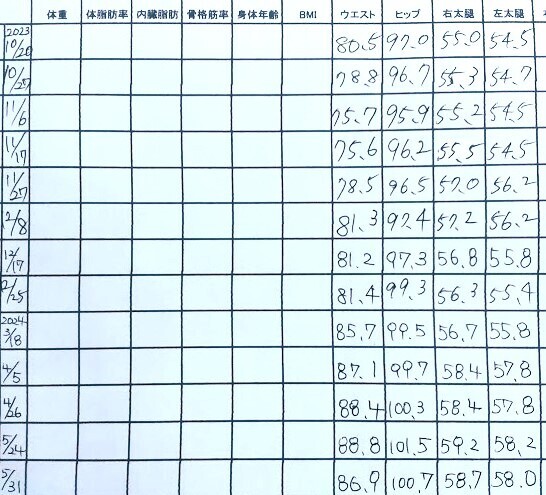 体重 体脂肪率 内臓脂肪 骨格筋率 身体年齢 BMI ウエスト ヒップ 右太腿 左太腿
2023
10/20 80.5 97.0 55.0 54.5
10/27 78.8 96.7 55.3 54.7
11/6 75.7 95.9 55.2 54.5
11/17 75.6 96.2 55.5 54.5
11/27 78.5 96.5 57.0 56.2
12/8 81.3 97.4 57.2 56.2
12/17 81.2 97.3 56.8 55.8
12/25 81.4 99.3 56.3 55.4
2024
3/18 85.7 99.5 56.7 55.8
4/5 87.1 99.7 58.4 57.8
4/26 88.4 100.3 58.4 57.8
5/24 88.8 101.5 59.2 58.2
5/31 86.9 100.7 58.7 58.0